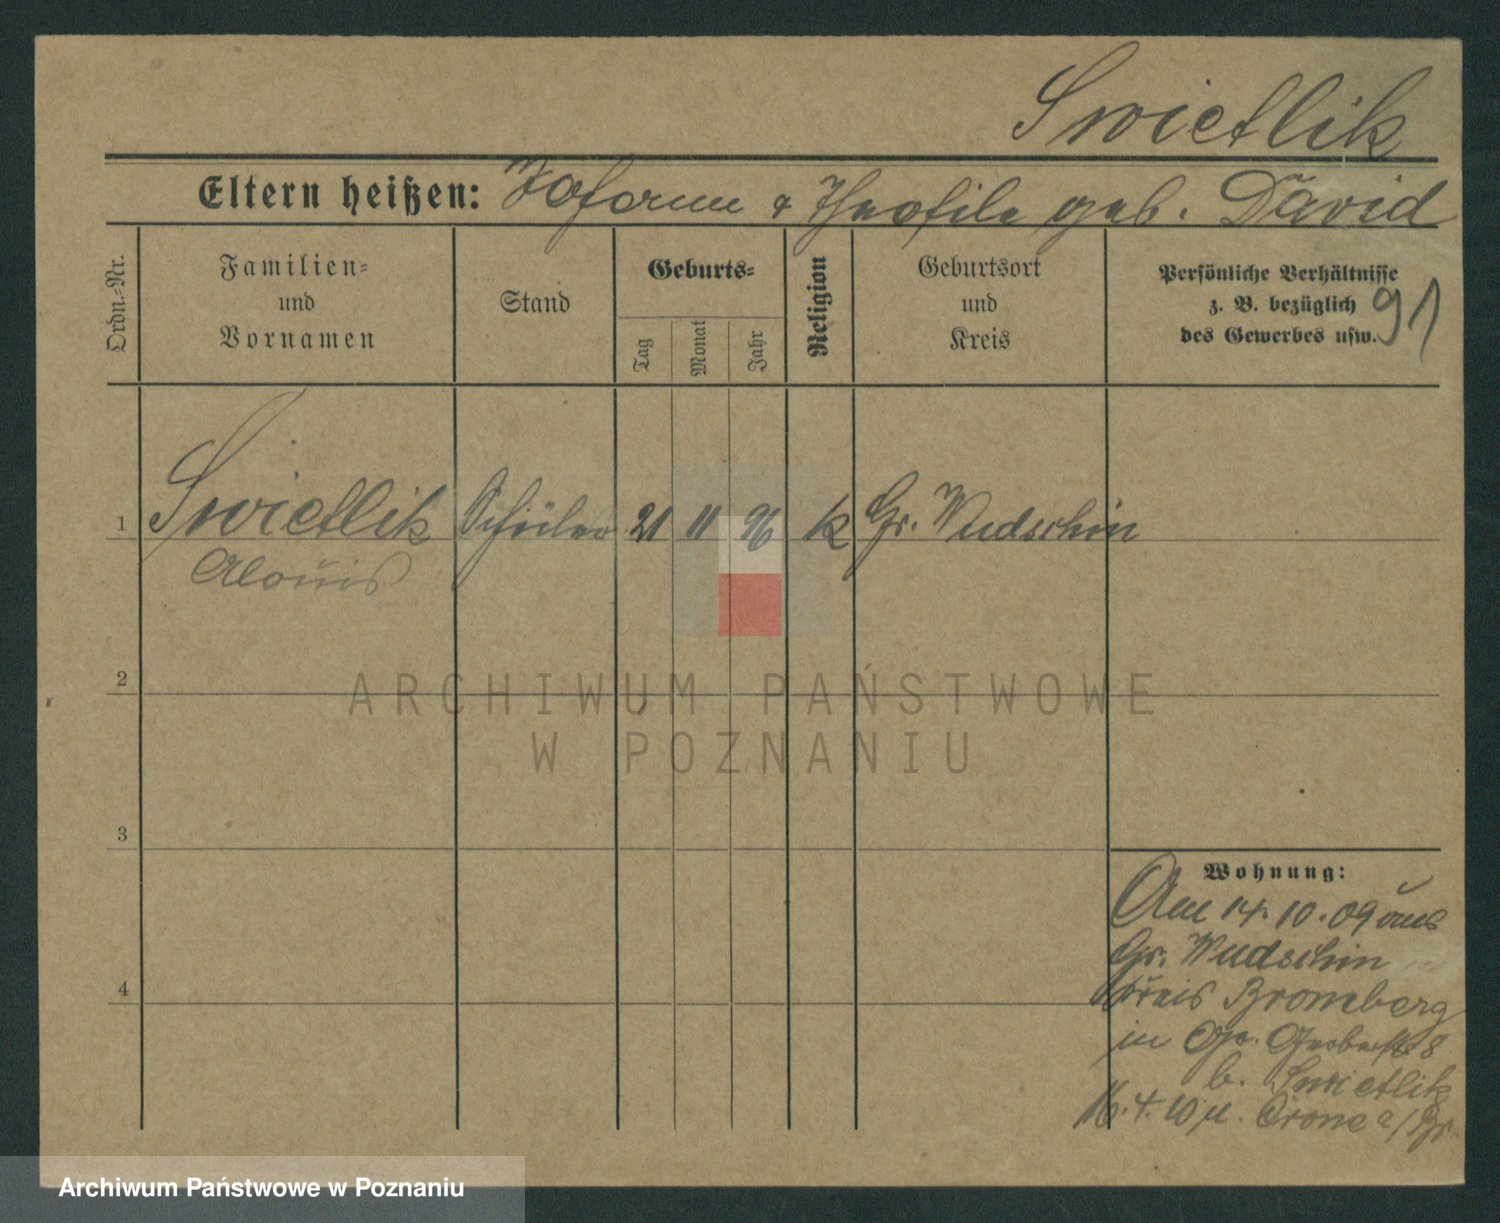 Swietlik
Eltern heißen: Johann & Theofile geb. David
Ordn.-Nr.
Familien-
und
Vornamen
Stand
Geburts-
Tag
Monat
Jahr
Religion
Geburtsort
und
Kreis
Persönliche Verhältnisse
z. B. bezüglich
des Gewerbes usw.
91
1 Swietlik Schüler 21 11 96 k Gr. Wudschin
Alouis
2
ARCHIWUM PAŃSTWOWE
W POZNANIU
3
Wohnung:
Am 14.10.09 aus
Gr. Wudschin
4
Kreis Bromberg
in Gr. 8
b. Swietlik
16.4.10 n. Crone a/Br.
Archiwum Państwowe w Poznaniu